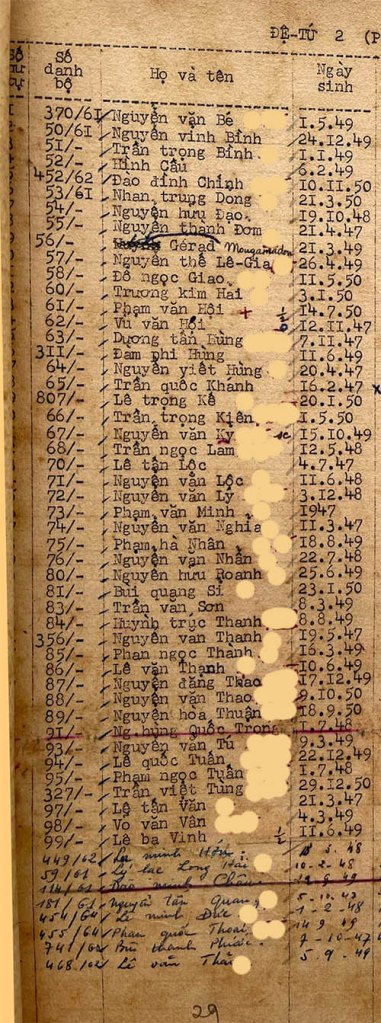 ĐỆ-TỨ 2 (P
Số Số Ngày
danh Họ và tên sinh
bộ
370/6I Nguyễn văn Bé I.5.49
50/6I Nguyễn vinh Bình 24.I2.49
5I/- Trần trọng Bình I.I.49
52/- Hình Cầu 6.2.49
452/62 Đào đình Chính I0.II.50
53/6I Nhan trung Dong 2I.3.50
54/- Nguyễn hưu Đạo I9.I0.48
55/- Nguyễn thanh Đơm 2I.4.47
56/- Gérad Mougamadou 2I.3.49
57/- Nguyễn thế Lê-Gia 26.4.49
58/- Đỗ ngọc Giao II.5.50
60/- Trương kim Hai 3.I.50
6I/- Phạm văn Hôi + ½ I4.7.50
62/- Vũ văn Hối I2.II.47
63/- Dương tấn Hùng 7.II.47
3II/- Đam phi Hùng II.6.49
64/- Nguyễn yiết Hùng 20.4.47
65/- Trần quốc Khánh I6.2.47 x
807/- Lê trọng Kế 20.I.50
66/- Trần trọng Kiên I.5.50
67/- Nguyễn văn Ky I5.I0.49
68/- Trần ngọc Lam I2.5.48
70/- Lê tấn Lộc 4.7.47
7I/- Nguyễn văn Lộc II.6.48
72/- Nguyễn văn Lý 3.I2.48
73/- Phạm văn Minh I947
74/- Nguyễn văn Nghĩa II.3.47
75/- Phạm hà Nhân I8.8.49
76/- Nguyễn văn Nhẫn 22.7.48
80/- Nguyễn hưu Roanh 25.6.49
8I/- Bùi quang Si 23.I.50
83/- Trần văn Sơn 8.3.49
84/- Huỳnh trúc Thanh 8.8.49
356/- Nguyễn văn Thanh I9.5.47
85/- Phan ngọc Thành I6.3.49
86/- Lê văn Thạnh I0.6.49
87/- Nguyễn đăng Thao I7.I2.49
88/- Nguyễn văn Thao 9.I0.50
89/- Nguyễn hòa Thuận I8.9.50
9I/- Ng.hùng Quốc Trọng I.7.48
93/- Nguyễn văn Tú 9.3.49
94/- Lê quốc Tuấn 22.I2.49
95/- Phạm ngọc Tuấn I.7.48
327/- Trần việt Tùng 29.I2.50
97/- Lê tấn Văn 2I.3.47
98/- Vo văn Vân 4.3.49
99/- Lê ba Vinh ½ II.6.49
449/62 minh 5. 48
59/61 Lý lac Long Hải 10-2-48
114/61 Đào minh Châu 49
181/61 Nguyễn tấn Quang 5-10-47
454/64 Lê minh Đức 1-2-48
455/64 Phan quốc Thoại 14 9 49
741/62 Bùi thanh Phước 7-10-47
468/62 Lê văn 5-9-49
29